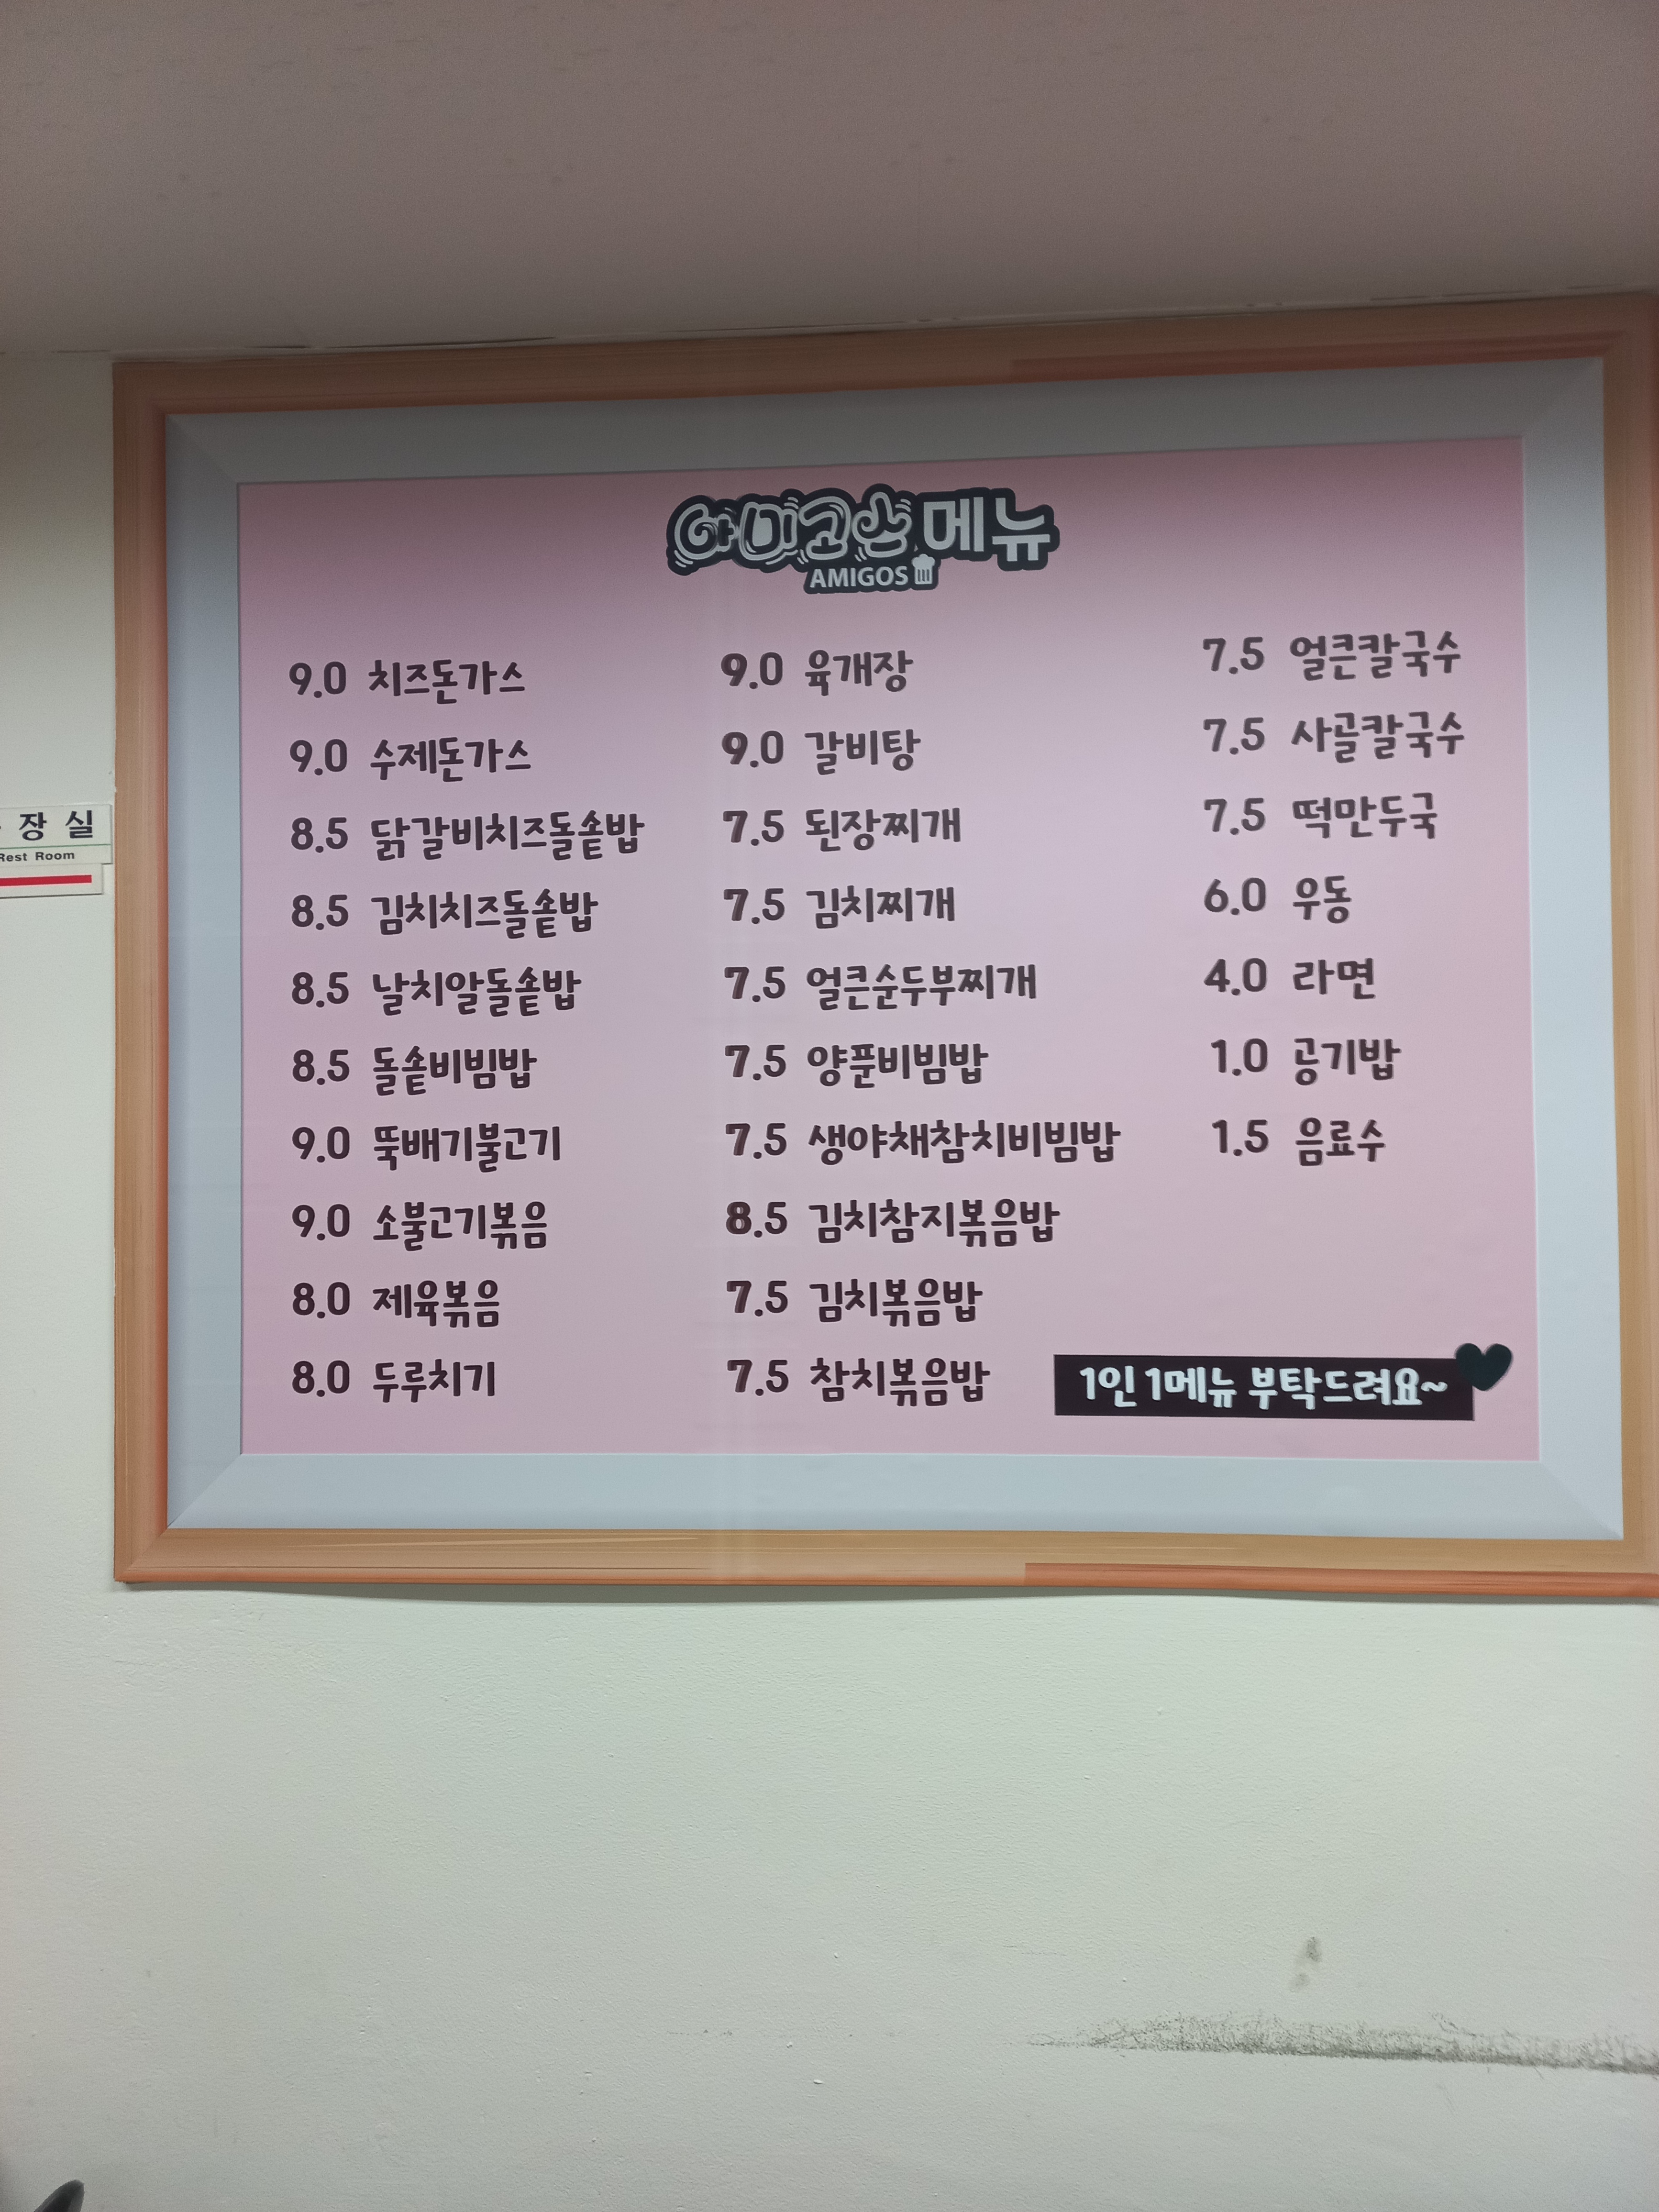 아미고스 메뉴
AMIGOS
9.0 치즈돈가스
9.0 수제돈가스
8.5 닭갈비치즈돌솥밥
8.5 김치치즈돌솥밥
8.5 날치알돌솥밥
8.5 돌솥비빔밥
9.0 뚝배기불고기
9.0 소불고기볶음
8.0 제육볶음
8.0 두루치기
9.0 육개장
9.0 갈비탕
7.5 된장찌개
7.5 김치찌개
7.5 얼큰순두부찌개
7.5 양푼비빔밥
7.5 생야채참치비빔밥
8.5 김치참지볶음밥
7.5 김치볶음밥
7.5 참치볶음밥
7.5 얼큰칼국수
7.5 사골칼국수
7.5 떡만두국
6.0 우동
4.0 라면
1.0 공기밥
1.5 음료수
1인 1메뉴 부탁드려요~
장실
Rest Room